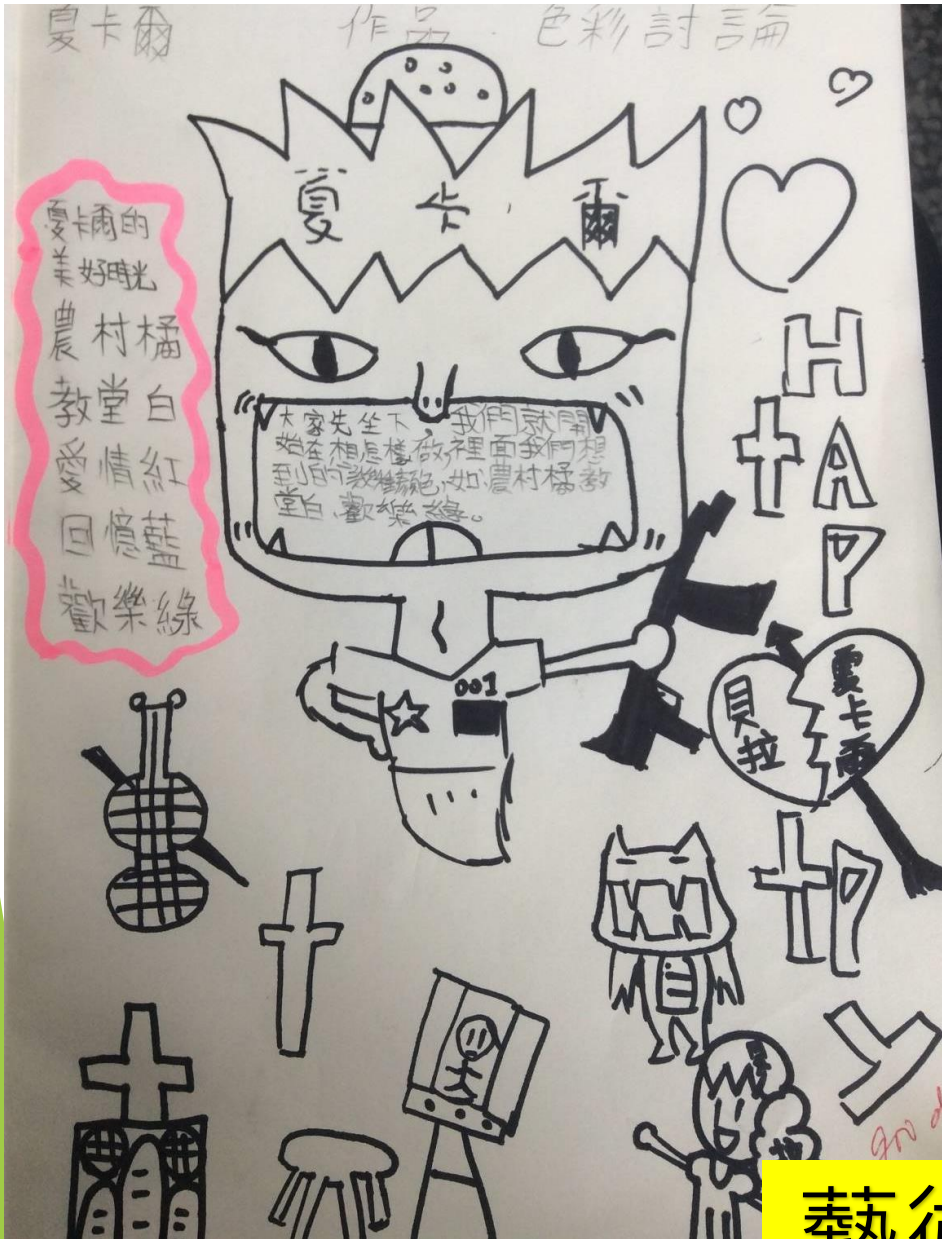 夏卡爾 作品.色彩討論
夏卡爾
夏卡爾的
美好時光
農村橘
教堂白
愛情紅
回憶藍
歡樂綠
大家先坐下,我們就開
始在想怎樣做,裡面我們想
到的
如農村橘教
堂白、歡樂綠。
HAPPY
001
貝拉
夏卡爾
good
藝術